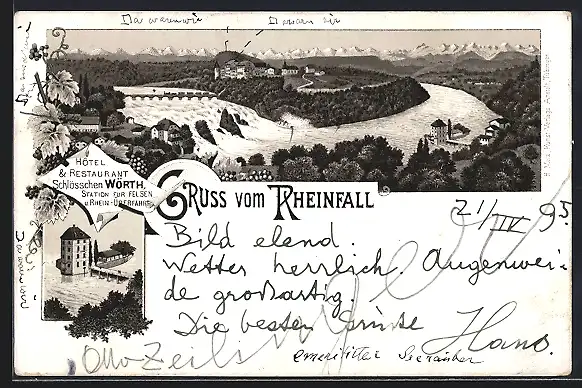 Da waren wir
Da waren wir
HÔTEL
& RESTAURANT
SCHLÖSSCHEN WÖRTH,
STATION FÜR FELSEN
U. RHEIN-ÜBERFAHRT.
GRUSS VOM RHEINFALL
21/IV 95.
Bild elend.
Wetter herrlich. Augenwei-
de großartig.
Die besten Grüße
Hans.
Otto Zeil
emeritierter Seeräuber
Da waren wir